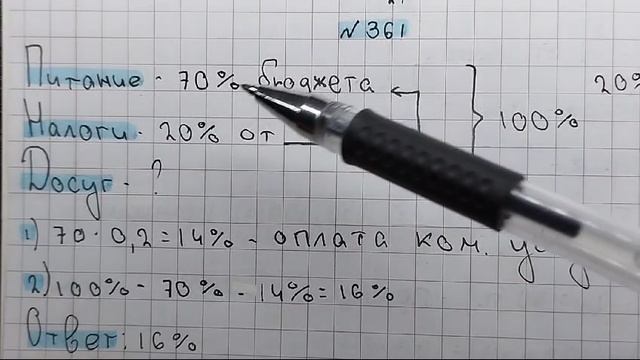 N 361
Питание - 70% бюджета
20%
Налоги - 20% от
100%
Досуг - ?
1) 70 · 0,2 = 14% - оплата ком.
2) 100% - 70% - 14% = 16%
Ответ: 16%